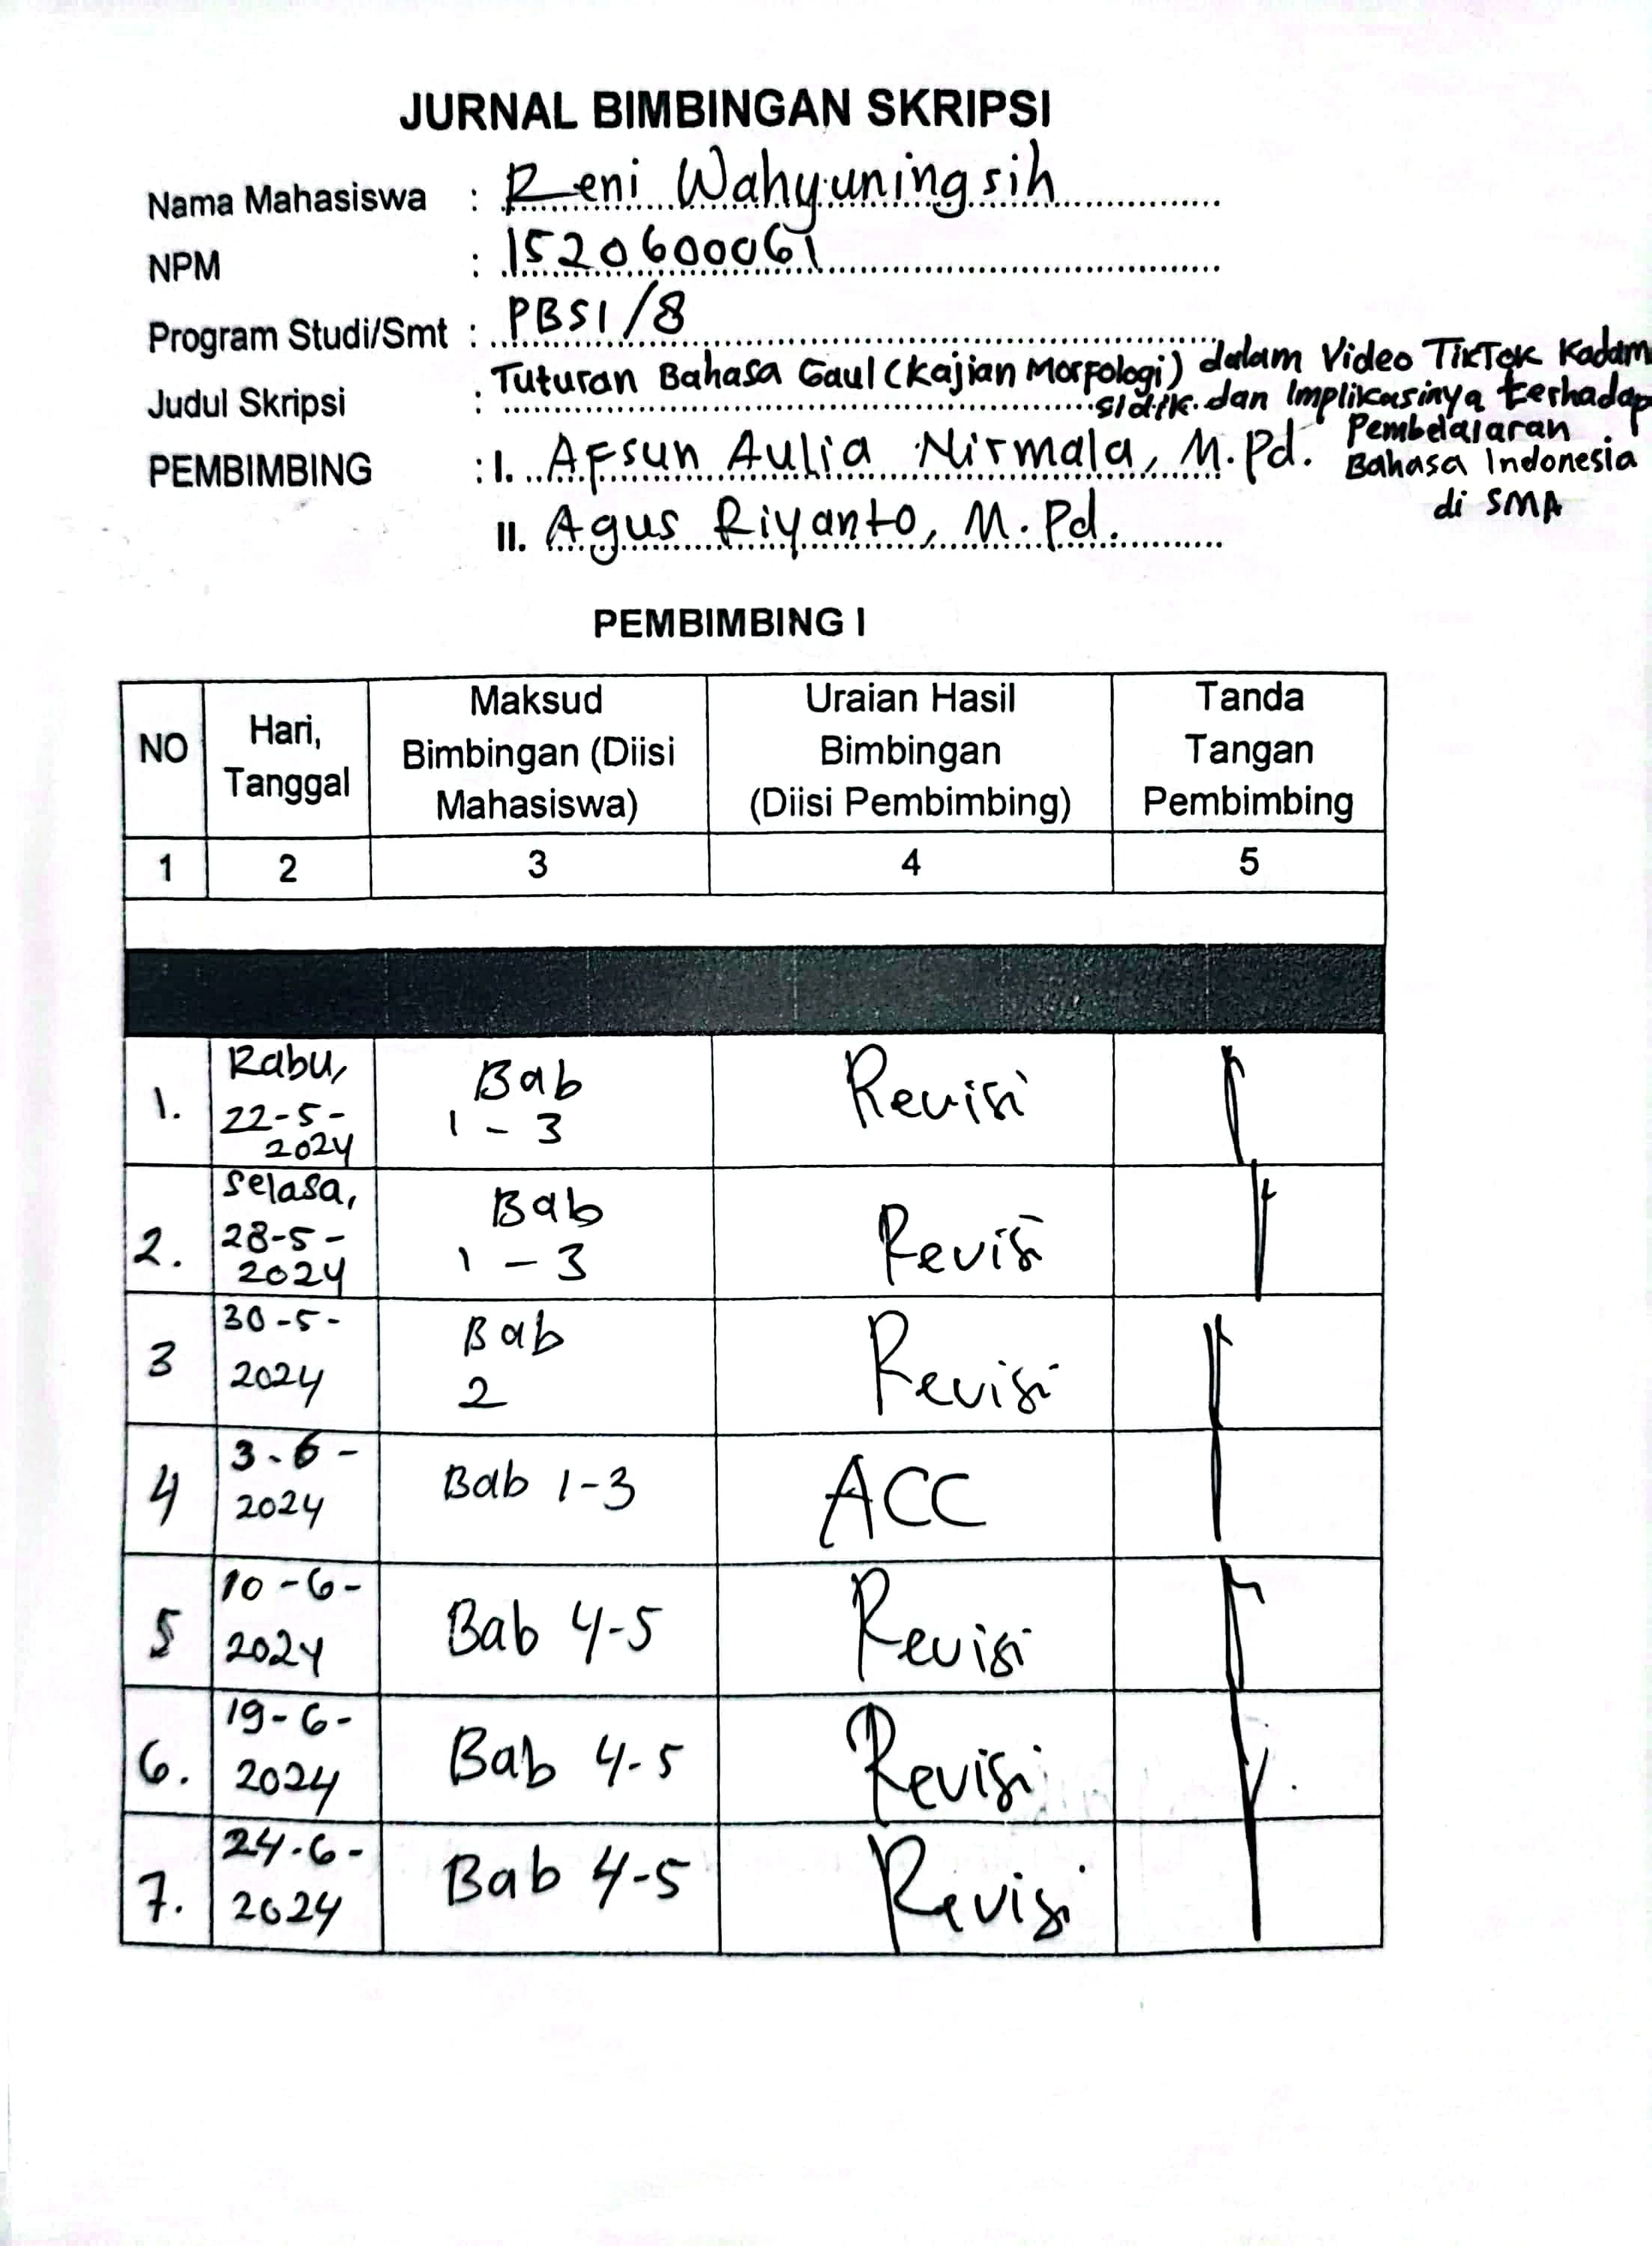 JURNAL BIMBINGAN SKRIPSI
Nama Mahasiswa : Reni Wahyuningsih
NPM : 1520600061
Program Studi/Smt : PBSI/8
Judul Skripsi : Tuturan Bahasa Gaul (Kajian Morfologi) dalam Video TikTok Kadam
Sidik dan Implikasinya terhadap
Pembelajaran
Bahasa Indonesia
di SMA
PEMBIMBING : I. Afsun Aulia Nirmala, M.Pd.
II. Agus Riyanto, M.Pd.
PEMBIMBING I
NO Hari, Tanggal Maksud Bimbingan (Diisi Mahasiswa) Uraian Hasil Bimbingan (Diisi Pembimbing) Tanda Tangan Pembimbing
1 2 3 4 5
1. Rabu, 22-5-2024 Bab 1 - 3 Revisi
2. Selasa, 28-5-2024 Bab 1 - 3 Revisi
3 30-5-2024 Bab 2 Revisi
4 3-6-2024 Bab 1-3 ACC
5 10-6-2024 Bab 4-5 Revisi
6. 19-6-2024 Bab 4-5 Revisi
7. 24-6-2024 Bab 4-5 Revisi